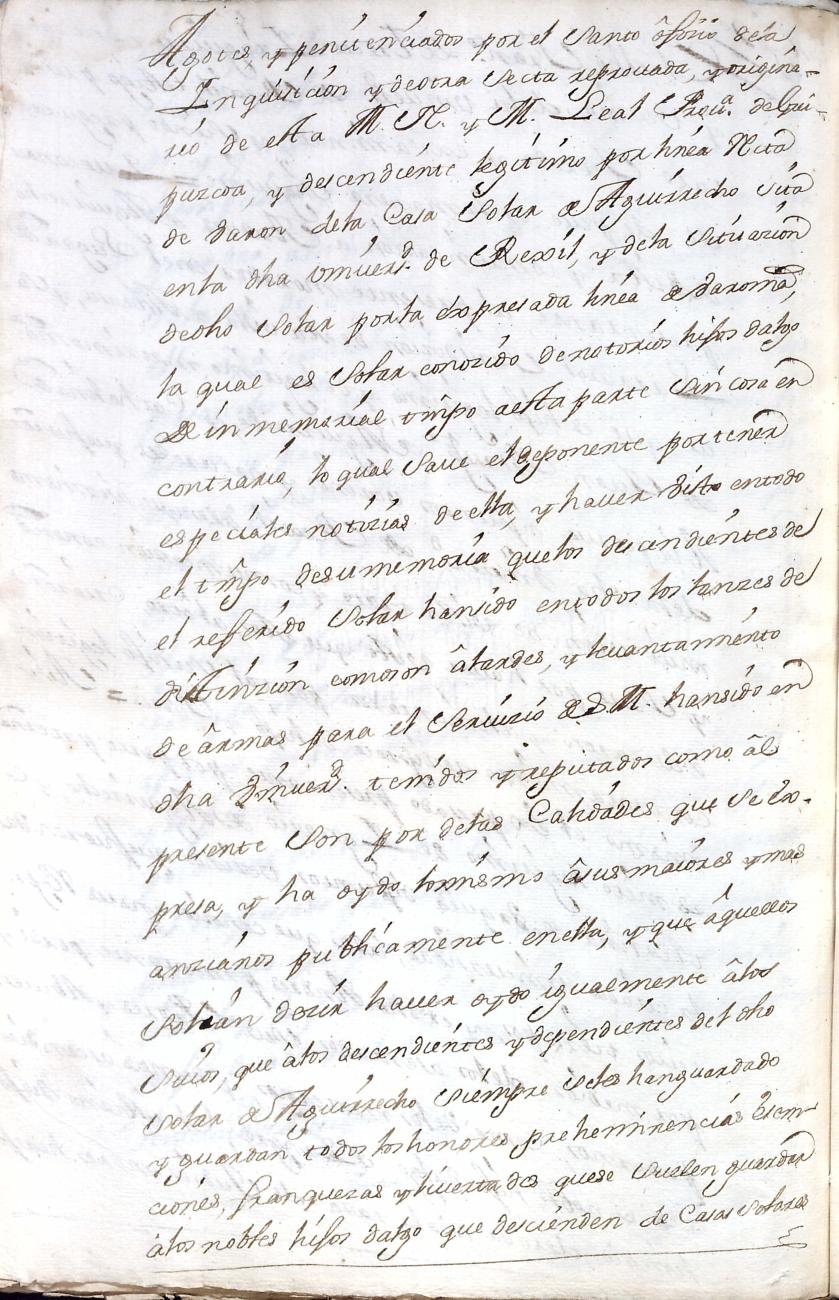 Agotes y penitenciados por el Santo ôficio dela
Inquisicion y de otra Secta reprouada, y origina-
rio de esta M. N. y M. Leal Prou.ª de Gui-
puzcoa, y descendiente legitimo por linea recta
de Varon dela Casa Solar de Aguirrecho sita
en la dha Vniuersd. de Rexil, y dela situazion
de dho Solar por la expresada linea de Varonia,
la qual es Solar conozido de notorios hijos dalgo
de inmemorial tmpo a esta parte sin cosa en
contrario, lo qual Saue el deponente por tener
especiales notizias de ella, y hauer visto en todo
el tmpo de su memoria que los descendientes de
el refferido Solar han sido en todos los lanzes de
distinzion como son âlardes, y leuantamiento
de ârmas para el Seruizio de S. M. han sido en
dha Vniuersd. tenidos y reputados como âl
presente Son por delas Calidades que se ex-
presa, y ha oydo lo mismo â sus maiores y mas
anzianos publicamente en ella, y que âquellos
Solian dezir hauer oydo igualmente â los
Suios, que â los descendientes y dependientes del dho
Solar de Aguirrecho siempre se les han guardado
y guardan todos los honores, preheminencias êsem-
ciones, franquezas y liuertades que se suelen guardar
â los nobles hijos dalgo que descienden de Casas Solares